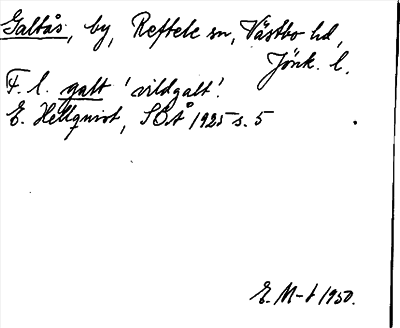 Galtås, by, Reftele sn, Västbo hd,
Jönk. l.
F. l. galt 'vildgalt'.
E. Hellquist, SOÅ 1925 s. 5
E. M-t 1950.